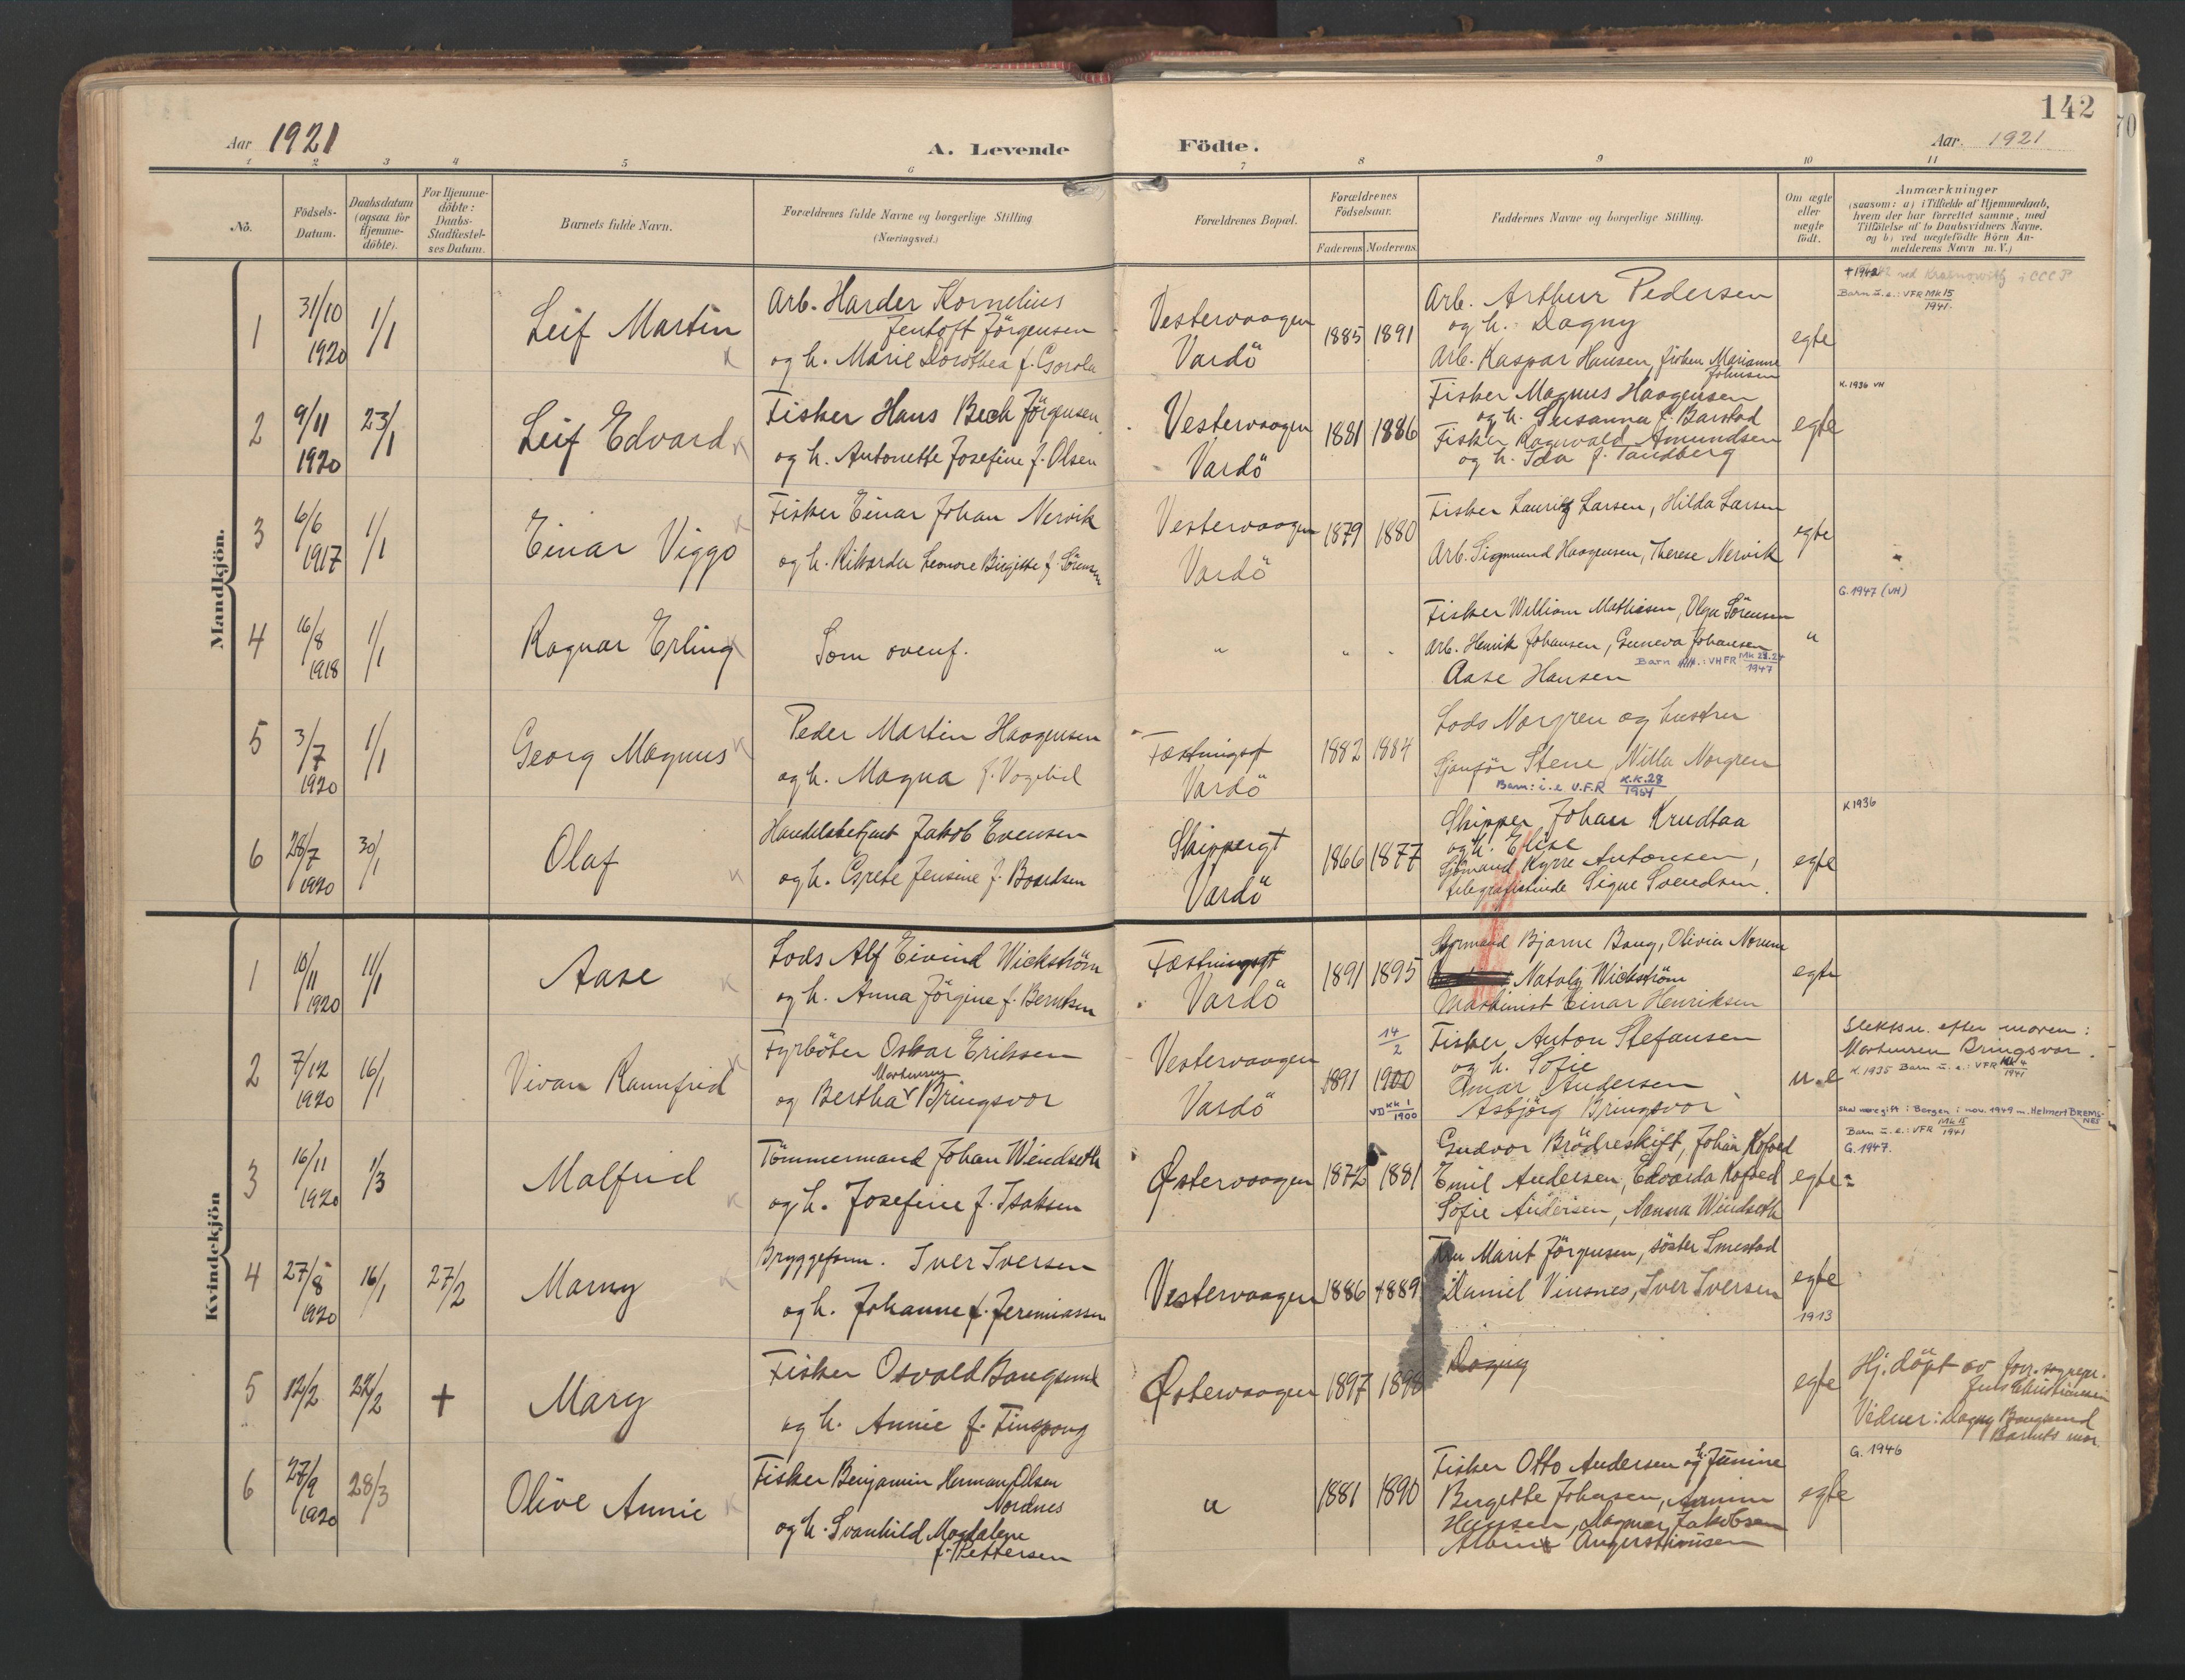 142
Aar 1921
A. Levende Födte.
Aar. 1921
1 2 3 4 5 6 7 8 9 10 11
No.
Födsels-Datum.
Daabsdatum (ogsaa for Hjemme-döbte).
For Hjemme-döbte: Daabs-Stadfæstel-ses Datum.
Barnets fulde Navn.
Forældrenes fulde Navne og borgerlige Stilling (Næringsvei.)
Forældrenes Bopæl.
Forældrenes Födselsaar.
Faderens Moderens
Faddernes Navne og borgerlige Stilling.
Om ægte eller uægte födt.
Anmærkninger
(saasom: a) i Tilfælde af Hjemmedaab,
hvem der har forrettet samme, med
Tilföielse af to Daabsvidners Navne.
og b) ved uægtefödte Börn An-
melderens Navn m. V.)
Mandkjön.
1
31/10 1920
1/1
Leif Martin
Arb. Harder Kornelius
Jentoft Jörgensen
og h. Marie Dorothea f.
Vestervaagen
Vardö
1885 1891
Arb. Arthur Pedersen
og h. Dagny
Arb. Kaspar Hansen, fröken Marianne
Johnsen
egte
Barn u.e.: VFR MK15
1941.
2
9/11 1920
23/1
Leif Edvard
Fisker Hans Bech Jörgensen
og h. Antonette Josefine f. Olsen
Vestervaagen
Vardö
1881 1886
Fisker Magnus Haagensen
og h. Susanna f. Barstad
Fisker Ragnvald Amundsen
og h. Ida f. Sandberg
egte
K. 1936 VH
3
6/6 1917
1/1
Einar Viggo
Fisker Einar Johan Nervik
og h. Rikarda Leonore Birgitte f. Sörensen
Vestervaagen
Vardö
1879 1880
Fisker Lauritz Larsen, Hilda Larsen
Arb. Sigmund Haagensen, Therese Nervik
egte
4
16/8 1918
1/1
Ragnar Erling
Som ovenf.
"
Fisker William Mathisen, Olga Sörensen
Arb. Henrik Johansen, Guneva Johansen
Aase Hansen
MK 23.24
1947
"
G. 1947 (VH)
5
3/7 1920
1/1
Georg Magnus
Peder Martin Haagensen
og h. Magna f.
Fæstningsgt
Vardö
1882 1884
Lods Norgren og hustru
Sjauför Stene, Nilla Norgren
Barn: i.e V.F.R K.K.28
6
28/7 1920
30/1
Olaf
Handelsbetjent Jakob Evensen
og h. Grete Jensine f. Boardsen
Skippergt
Vardö
1866 1877
Skipper Johan Krudtaa
og h. Elise
Sjömand Kyrre Antonsen,
telegrafistinde Signe Svendsen.
egte
K 1936
Kvindekjön
1
10/11 1920
11/1
Aase
Lods Alf Eivind Wickström
og h. Anna Jörgine f. Berntsen
Fæstningsgt
Vardö
1891 1895
Styrmand Bjarne Baug, Olivia Norum
Nataly Wickström
Maskinist Einar Henriksen
egte
2
7/12 1920
16/1
Vivan Rannfrid
Fyrböter Oskar Eriksen
Marthinsen
og Bertha Bringsvor
Vestervaagen
Vardö
1891
14/2
1900
VD KK 1
1900
Fisker Anton Stefansen
og h. Sofie
Einar Andersen
Asbjörg Bringsvor
u.e
Slektsn. efter moren:
Marthinsen Bringsvor.
K. 1935 Barn u.e.: VFR MK 4
1941
Skal være gift i Bergen i nov. 1949 m. Helmert BREMS-
NES
Barn u.e.: VFR MK 15
1941
3
16/11 1920
1/3
Malfrid
Tömmermand Johan Wendseth
og h. Josefine f. Isaksen
Østervaagen
1872 1881
Gudvor Brödreskift, Johan Kofoed
Emil Andersen, Edvarda Kofoed
Sofie Andersen, Nanna Windseth
egte
G. 1947.
4
27/8 1920
16/1
27/2
Marny
Bryggeform. Iver Iversen
og h. Johanne f. Jeremiassen
Vestervaagen
1886 1889
Fru Marit Jörgensen, söster Smestad
Daniel Vinsnes, Iver Iversen
egte
1913
5
12/2
22/2
+
Mary
Fisker Osvald Bangsund
og h. Annie f. Finspong
Østervaagen
1897 1898
Dagny
egte
Hj. döpt av forr. sogneprest
Jens Christiansen
Vidner: Dagny Bangsund
Barnets mor.
6
27/9 1920
28/3
Olive Annie
Fisker Benjamin Herman Olsen
Nordnes
og h. Svanhild Magdalene
f. Pettersen
"
1881 1890
Fisker Otto Andersen og h. Janine
Birgitte Johnsen,
Hansen, Magnar Jakobsen
egte
G. 1946